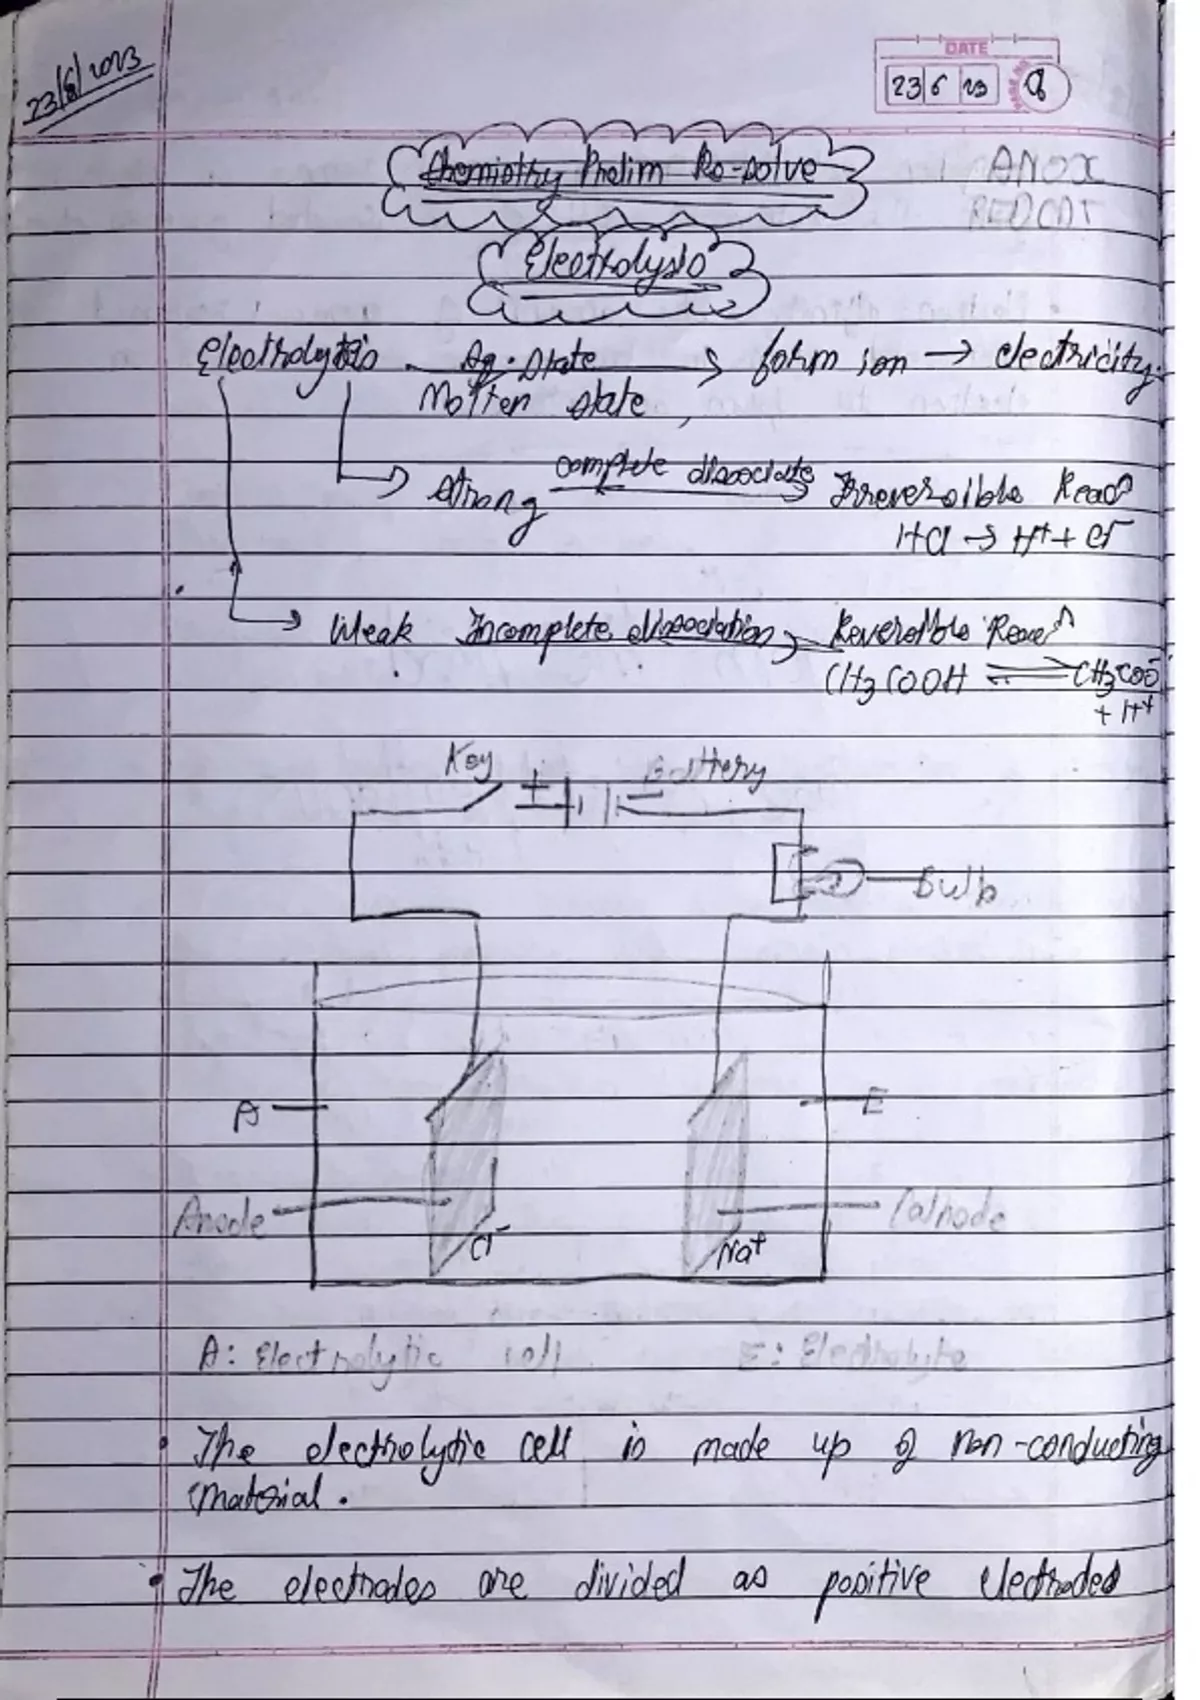 23/6/2023
DATE
23 6 23
Chemistry Prelim Re-solve
ANOX
REDCAT
Electrolysis
Electrolytis Aq. State → form ion → electricity.
Molten state,
Strong complete dissociate → Irreversible Reacn
HCl → H+ + Cl-
Weak Incomplete dissociation → Reversible Reacn
CH3COOH ⇌ CH3COO-
+ H+
Key + - Battery
Bulb
A E
Anode Cathode
Cl- Na+
A: Electrolytic cell E: Electrolyte
• The electrolytic cell is made up of non-conducting
material.
• The electrodes are divided as positive electrodes